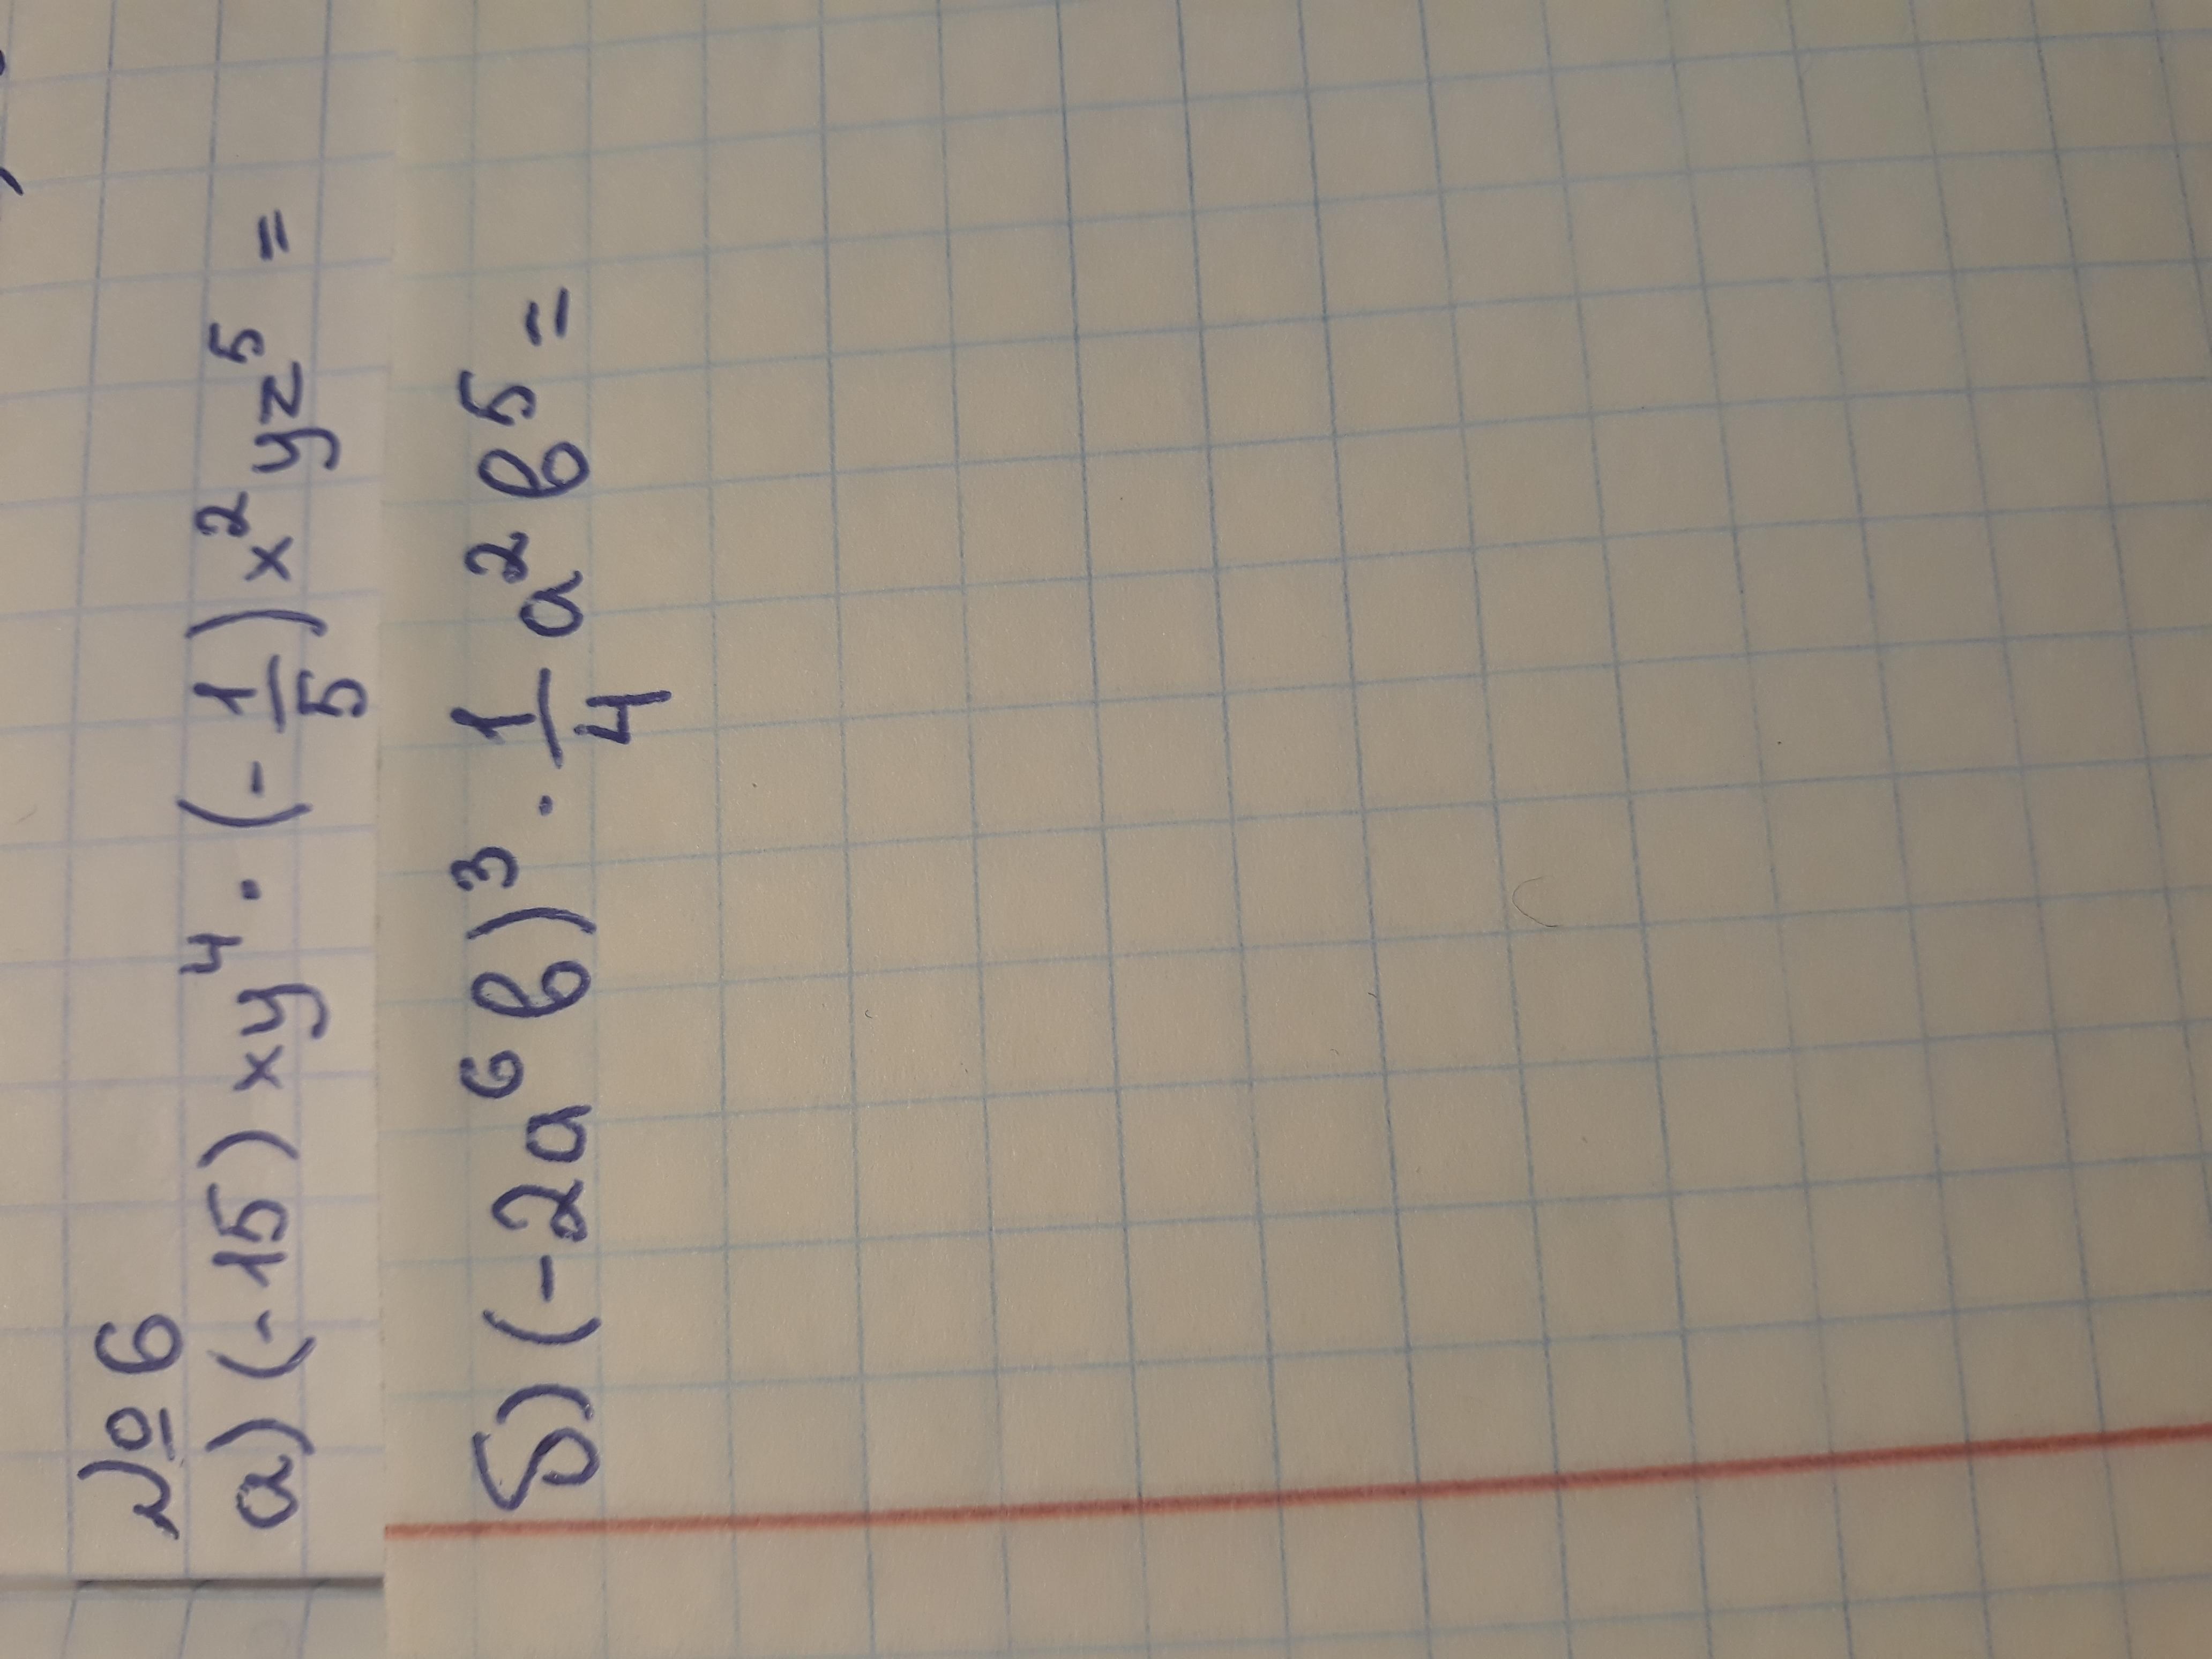 № 6
а) (-15) xy⁴ · (- 1/5) x² yz⁵ =
б) (-2a⁶ b)³ · 1/4 a² b⁵ =